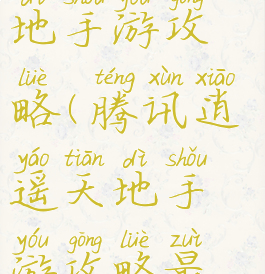 dì shǒu yóu gōng
地手游攻
lüè téng xùn xiāo
略(腾讯逍
yáo tiān dì shǒu
遥天地手
yóu gōng lüè zuì
游攻略最